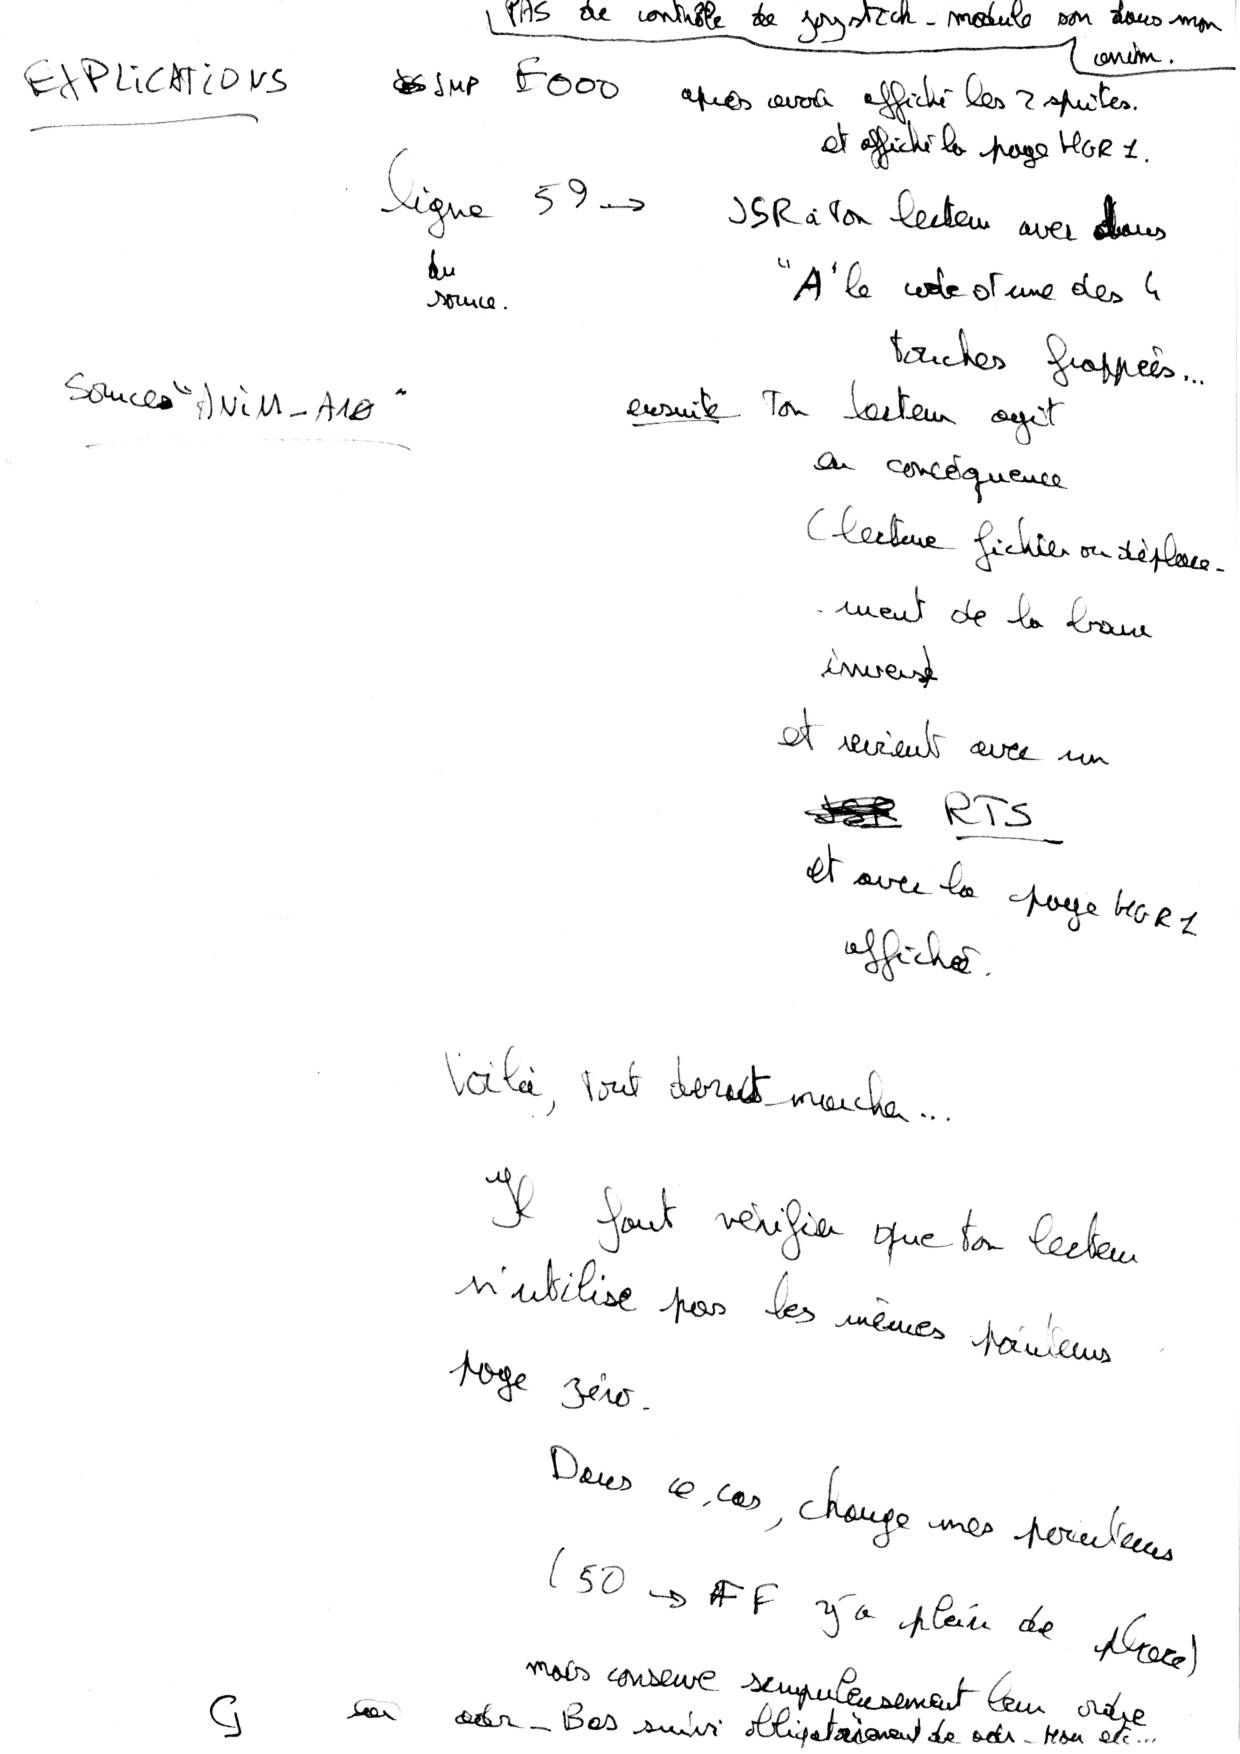 PAS de contrôle de joystick - module son dans mon
anim.
EXPLICATIONS JMP E000 après avoir affiché les 2 sprites.
et affiché la page HGR 1.
ligne 59 → JSR à ton lecteur avec dans
du
source.
"A" le code d'une des 4
touches frappées...
Sources "ANIM-A10"
ensuite Ton lecteur agit
en concéquence
(lecture fichier ou déplace-
ment de la barre
inverse
et revient avec un
RTS
et avec la page HGR 1
affichée.
Voilà, tout devrait marcher...
Il faut vérifier que ton lecteur
n'utilise pas les mêmes pointeurs
page zéro.
Dans ce cas, change mes pointeurs
(50 → FF y'a plein de place)
mais conserve scrupuleusement leur ordre
adr-Bas suivi obligatoirement de adr-Hau etc...